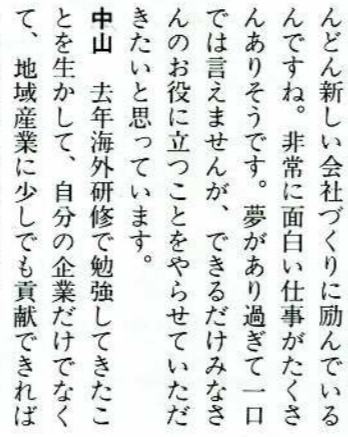 んどん新しい会社づくりに励んでいる
んですね。非常に面白い仕事がたくさ
んありそうです。夢があり過ぎて一口
では言えませんが、できるだけみなさ
んのお役に立つことをやらせていただ
きたいと思っています。
中山　去年海外研修で勉強してきたこ
とを生かして、自分の企業だけでなく
て、地域産業に少しでも貢献できれば